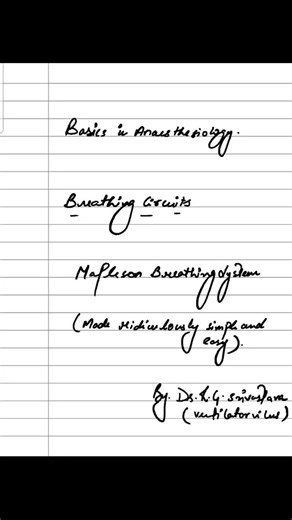 Basics in Anaesthesiology.
Breathing Circuits
Mapleson Breathing System
(Made ridiculously simple and
easy).
By. Dr. K. G. Srivastava
(ventilatorvilus)